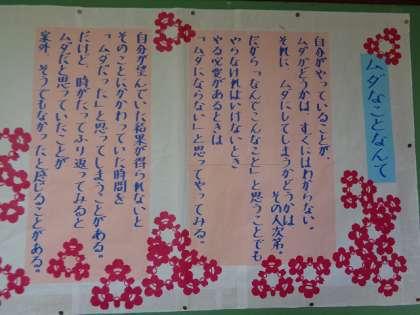 ムダなことなんて
自分がやっていることが、
ムダかどうかは、すぐにはわからない。
それに、ムダにしてしまうかどうかは
その人次第。
だから「なんでこんなこと」と思うことでも
やらなければいけないとき
やる必要があるときは
「ムダにならない」と思ってやってみる。
自分が望んでいた結果が得られないと
そのことにかかわっていた時間を
「ムダだった」と思ってしまうことがある。
だけど、時がたってふり返ってみると
ムダだと思っていたことが
案外、そうでもなかったと感じることがある。